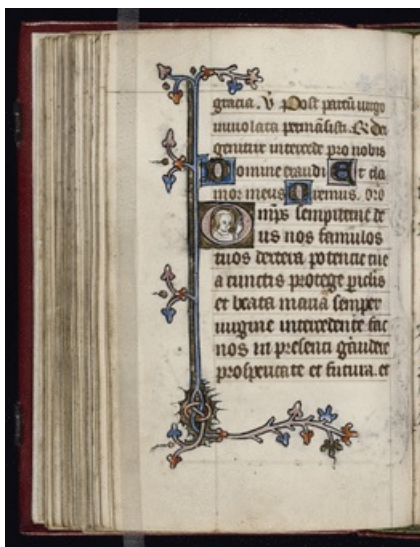 gracia. V̷ Post partū uirgo
inuiolata permāsisti. R̷ Dei
genitrix intercede pro nobis
Domine exaudi Et cla
mor meus Oremus. oro
Omīps sempiterne de
us nos famulos
tuos dextera potencie tue
a cunctis protege piclis
et beata maria semper
uirgine intercedente fac
nos in presenti gaudere
prosperitate et futura. et